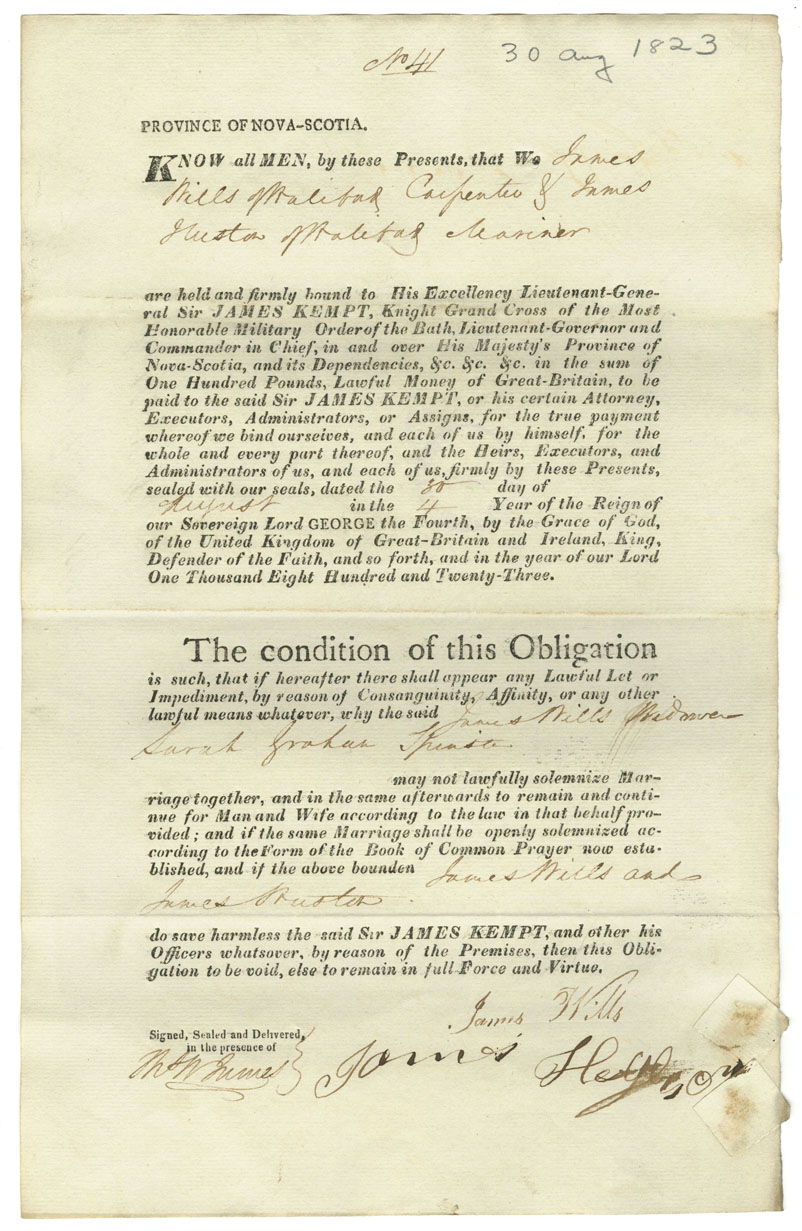 No 41
30 Aug 1823
PROVINCE OF NOVA-SCOTIA.
KNOW all MEN, by these Presents, that We James
Wills of Halifax Carpenter & James
Huston of Halifax Mariner
are held and firmly bound to His Excellency Lieutenant-Gene-
ral Sir JAMES KEMPT, Knight Grand Cross of the Most
Honorable Military Order of the Bath, Lieutenant-Governor and
Commander in Chief, in and over His Majesty's Province of
Nova-Scotia, and its Dependencies, &c. &c. &c. in the sum of
One Hundred Pounds, Lawful Money of Great-Britain, to be
paid to the said Sir JAMES KEMPT, or his certain Attorney,
Executors, Administrators, or Assigns, for the true payment
whereof we bind ourselves, and each of us by himself, for the
whole and every part thereof, and the Heirs, Executors, and
Administrators of us, and each of us, firmly by these Presents,
sealed with our seals, dated the 30 day of
August in the 4 Year of the Reign of
our Sovereign Lord GEORGE the Fourth, by the Grace of God,
of the United Kingdom of Great-Britain and Ireland, King,
Defender of the Faith, and so forth, and in the year of our Lord
One Thousand Eight Hundred and Twenty-Three.
The condition of this Obligation
is such, that if hereafter there shall appear any Lawful Let or
Impediment, by reason of Consanguinity, Affinity, or any other
lawful means whatever, why the said James Wills Widower
Sarah Graham Spinster
may not lawfully solemnize Mar-
riage together, and in the same afterwards to remain and conti-
nue for Man and Wife according to the law in that behalf pro-
vided; and if the same Marriage shall be openly solemnized ac-
cording to the Form of the Book of Common Prayer now esta-
blished, and if the above bounden James Wills and
James Huston
do save harmless the said Sir JAMES KEMPT, and other his
Officers whatsover, by reason of the Premises, then this Obli-
gation to be void, else to remain in full Force and Virtue.
James Wills
Signed, Sealed and Delivered,
in the presence of
James